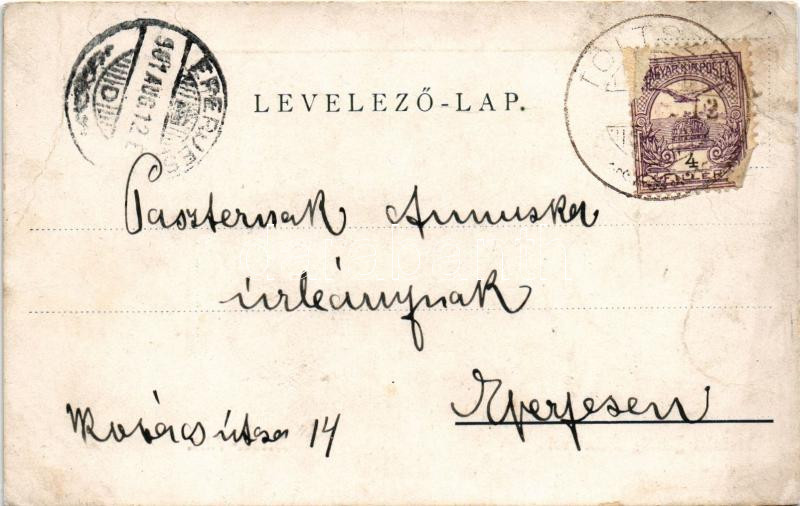 EPERJES
901 AUG 12
D
LEVELEZŐ-LAP.
TOLTS
MAGYAR KIR. POSTA
4
Paszternak Annuska
úrleánynak
Eperjesen
Kovács útsa 14